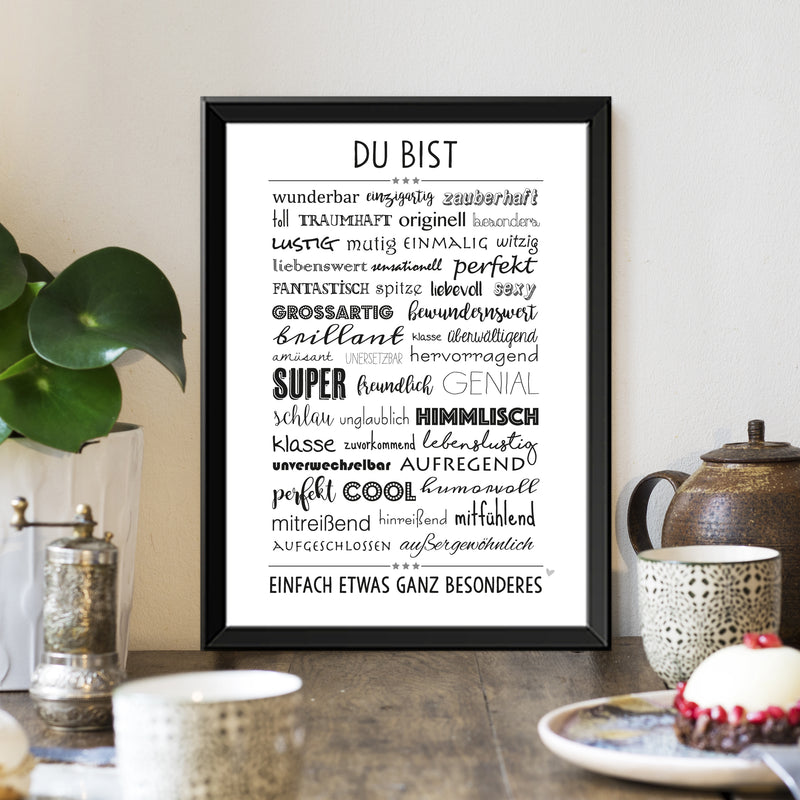 DU BIST
wunderbar einzigartig zauberhaft
toll TRAUMHAFT originell besonders
LUSTIG mutig EINMALIG witzig
liebenswert sensationell perfekt
FANTASTISCH spitze liebevoll sexy
GROSSARTIG bewundernswert
brillant klasse überwältigend
amüsant UNERSETZBAR hervorragend
SUPER freundlich GENIAL
schlau unglaublich HIMMLISCH
klasse zuvorkommend lebenslustig
unverwechselbar AUFREGEND
perfekt COOL humorvoll
mitreißend hinreißend mitfühlend
AUFGESCHLOSSEN außergewöhnlich
EINFACH ETWAS GANZ BESONDERES